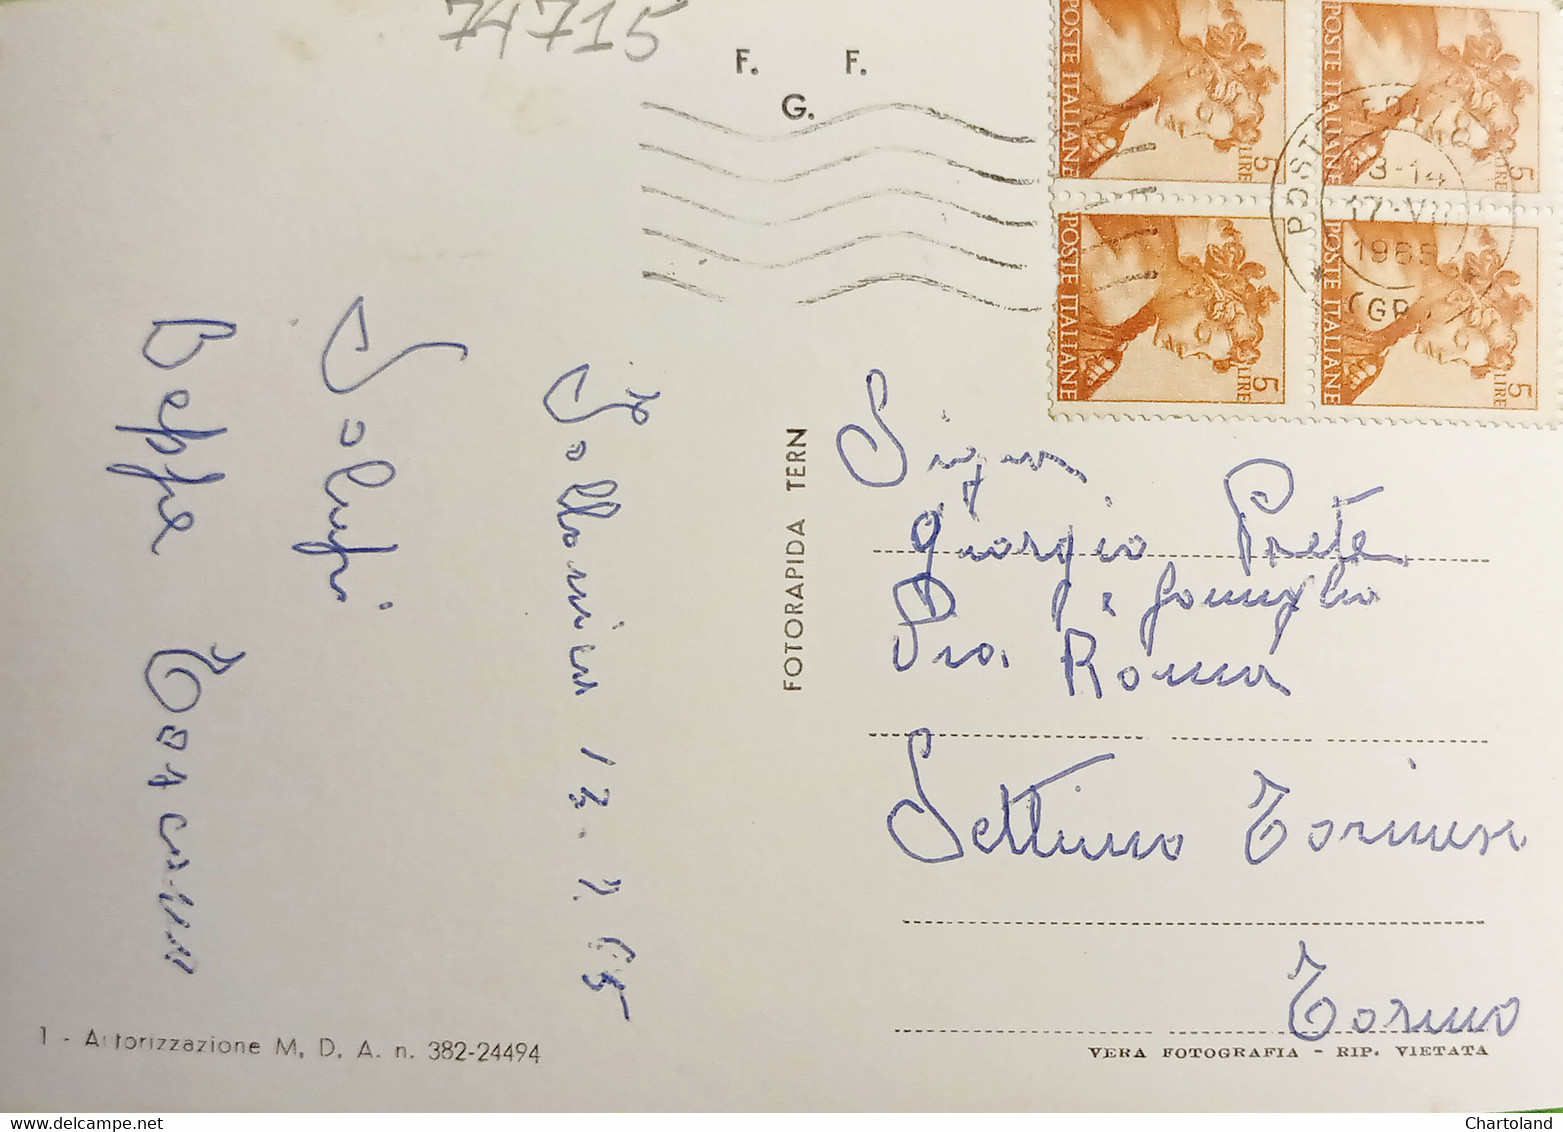 74715
F. F.
G.
POSTE ITALIANE
LIRE 5
POSTE ITALIANE
LIRE 5
POSTE ITALIANE
LIRE 5
POSTE ITALIANE
LIRE 5
13-14
17·VII
1965
Sottomarina 12.7.65
Saluti
Beppe
FOTORAPIDA TERNI
Signor
Giorgio Prete
e famiglia
Via Roma
Settimo Torinese
Torino
1 - Autorizzazione M. D. A. n. 382-24494
VERA FOTOGRAFIA - RIP. VIETATA
Chartoland